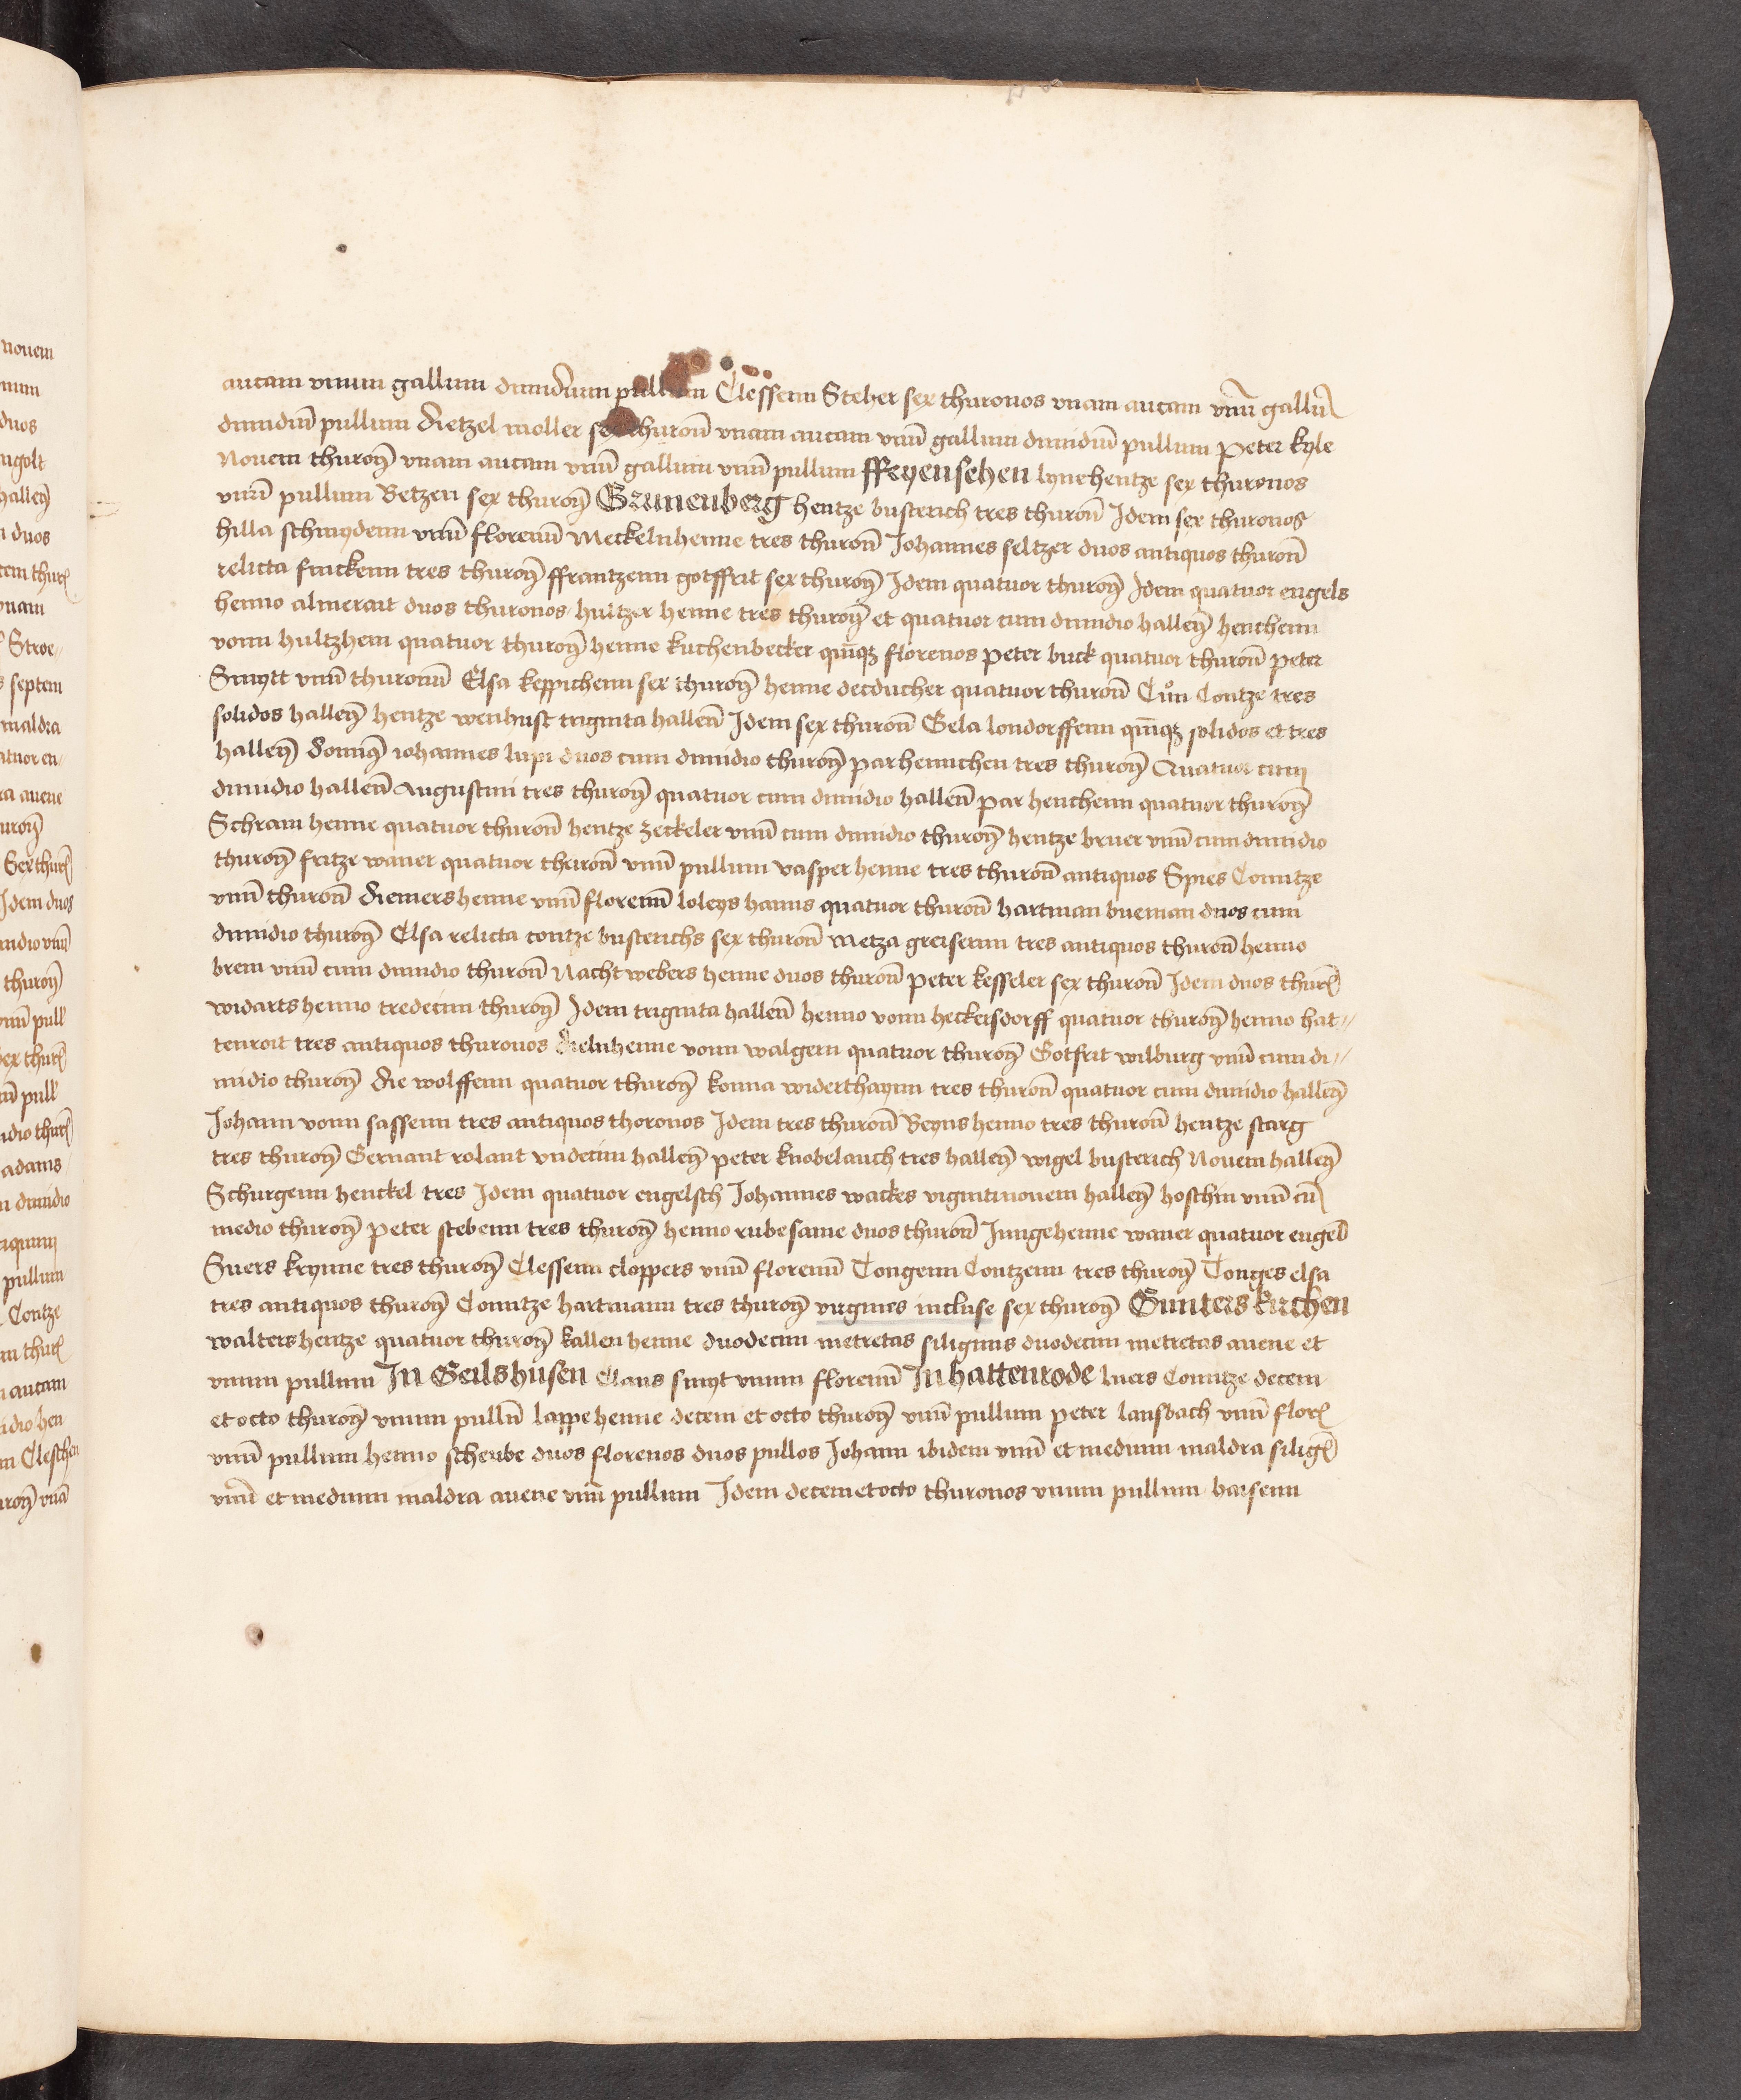 aucam vnum gallum dimidium pullum Clessenn Steher sex thuronos vnam aucam vnū gallū
dimidiū pullum Dietzel moller sex thuronꝭ vnam aucam vnū gallum dimidiū pullum Peter kyle
Nouem thuronꝭ vnam aucam vnū gallum vnū pullum ffeyensehen lynehentze sex thuronos
vnū pullum Betzen sex thuronꝭ Grunenberg hentze busterich tres thuronꝭ Idem sex thuronos
hilla schmydenn vnū florenū Meckelnhenne tres thuronꝭ Johannes seltzer duos antiquos thuronꝭ
relicta finckenn tres thuronꝭ ffrantzenn gotffrit sex thuronꝭ Idem quatuor thuronꝭ Idem quatuor engels
henno almerait duos thuronos hultzer henne tres thuronꝭ et quatuor cum dimidio hallenꝭ henchenn
vonn hultzhem quatuor thuronꝭ henne kuchenbecker quīqꝫ florenos Peter buck quatuor thuronꝭ peter
Smytt vnū thuronū Elsa keppichenn sex thuronꝭ henne decducher quatuor thuronꝭ Cůn Contze tres
solidos hallenꝭ hentze wenhust triginta hallenꝭ Idem sex thuronꝭ Gela londorffenn quīqꝫ solidos et tres
hallenꝭ Domīꝰ iohannes lupi duos cum dimidio thuronꝭ par hennchen tres thuronꝭ Quatuor cum
dimidio hallenꝭ Augustini tres thuronꝭ quatuor cum dimidio hallenꝭ par henchenn quatuor thuronꝭ
Schram henne quatuor thuronꝭ hentze zeckeler vnū cum dimidio thuronꝭ hentze bruer vnū cum dimidio
thuronꝭ fritze waner quatuor thuronꝭ vnū pullum vasper henne tres thuronꝭ antiquos Spies Conntze
vnū thuronꝭ Diemershenne vnū florenū loleys hanns quatuor thuronꝭ hartman bueman duos cum
dimidio thuronꝭ Elsa relicta contze busterichs sex thuronꝭ Metza greiserinn tres antiquos thuronꝭ henno
brem vnū cum dimidio thuronꝭ Nacht webers henne duos thuronꝭ peter kesseler sex thuronꝭ Idem duos thurꝭ
widarts henno tredecim thuronꝭ Idem triginta hallenꝭ henno vonn heckersdorff quatuor thuronꝭ henno hat//
tenroit tres antiquos thuronos Dielnhenne vonn walgern quatuor thuronꝭ Gotfrit wilburg vnū cum di//
midio thuronꝭ die wolffenn quatuor thuronꝭ konna widerthaynn tres thuronꝭ quatuor cum dimidio hallenꝭ
Johann vonn sassenn tres antiquos thoronos Idem tres thuronꝭ Beyns henno tres thuronꝭ hentze starg
tres thuronꝭ Gernant rolant vndecim hallenꝭ peter knobelauch tres hallenꝭ wigel busterich Nouem hallenꝭ
Schurgenn henckel tres Idem quatuor engelsch Johannes wackes vigintinouem hallenꝭ hoschin vnū cū
medio thuronꝭ peter stebenn tres thuronꝭ henno rubesame duos thuronꝭ Jungehenne waner quatuor engelꝭ
Suers krynne tres thuronꝭ Clessenn cloppers vnū florenū Tongenn Contzenn tres thuronꝭ Tonges elsa
tres antiquos thuronꝭ Conntze hartmann tres thuronꝭ virgines incluse sex thuronꝭ Gunterskirchen
walters hentze quatuor thuronꝭ kallen henne duodecim metretas siliginis duodecim metretas auene et
vnum pullum In Geilshusen Claus smyt vnum florenū In hattenrode luers Conntze decem
et octo thuronꝭ vnum pullū lappe henne decem et octo thuronꝭ vnū pullum peter lansbach vnū florꝭ
vnū pullum henno scheube duos florenos duos pullos Johann ibidem vnū et medium maldra siligꝭ
vnū et medium maldra auene vnū pullum Idem decemetocto thuronos vnum pullum harsenn